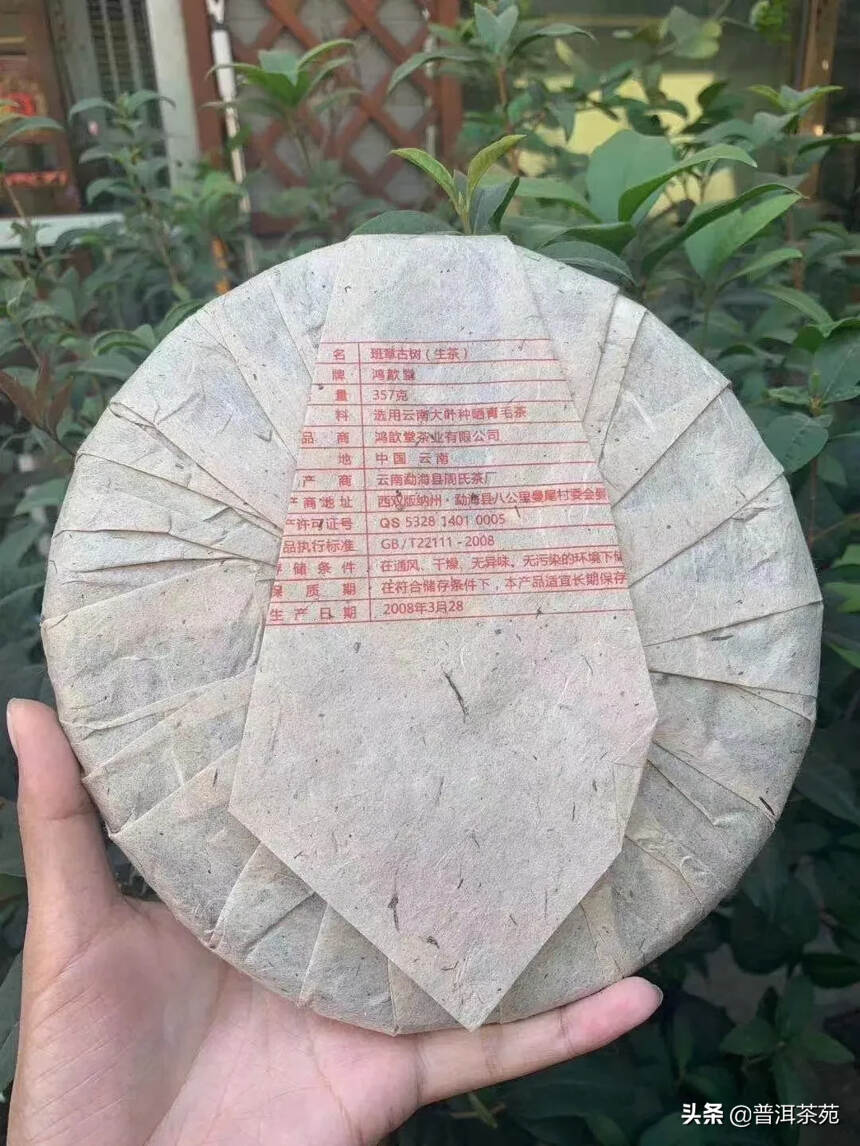 名 班章古树（生茶）
牌 鸿歆堂
量 357克
料 选用云南大叶种晒青毛茶
品 商 鸿歆堂茶业有限公司
地 中国 云南
产 商 云南勐海县周氏茶厂
产商地址 西双版纳州·勐海县八公里曼尾村委会
产许可证号 QS 5328 1401 0005
品执行标准 GB/T22111-2008
储条件 在通风、干燥、无异味、无污染的环境下
保质期 在符合储存条件下，本产品适宜长期保存
生产日期 2008年3月28
头条 @普洱茶苑